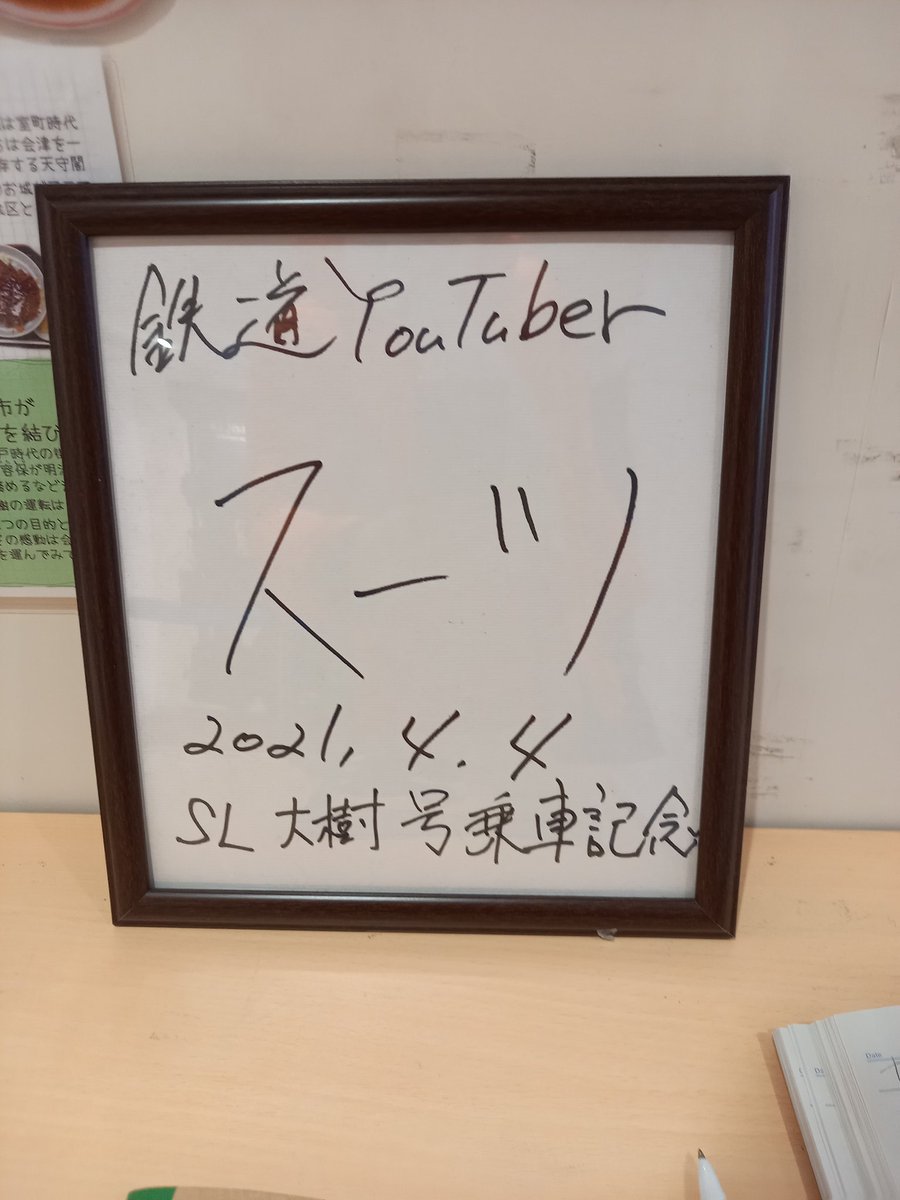 鉄道YouTuber
スーツ
2021.4.4
SL大樹号乗車記念
は室町時代
は会津を一
する天守閣
のお城
区と
市が
を結び
戸時代の
容保が明治
始めるなど
の運転は
つの目的と
の感動は会
を運んでみて
Date